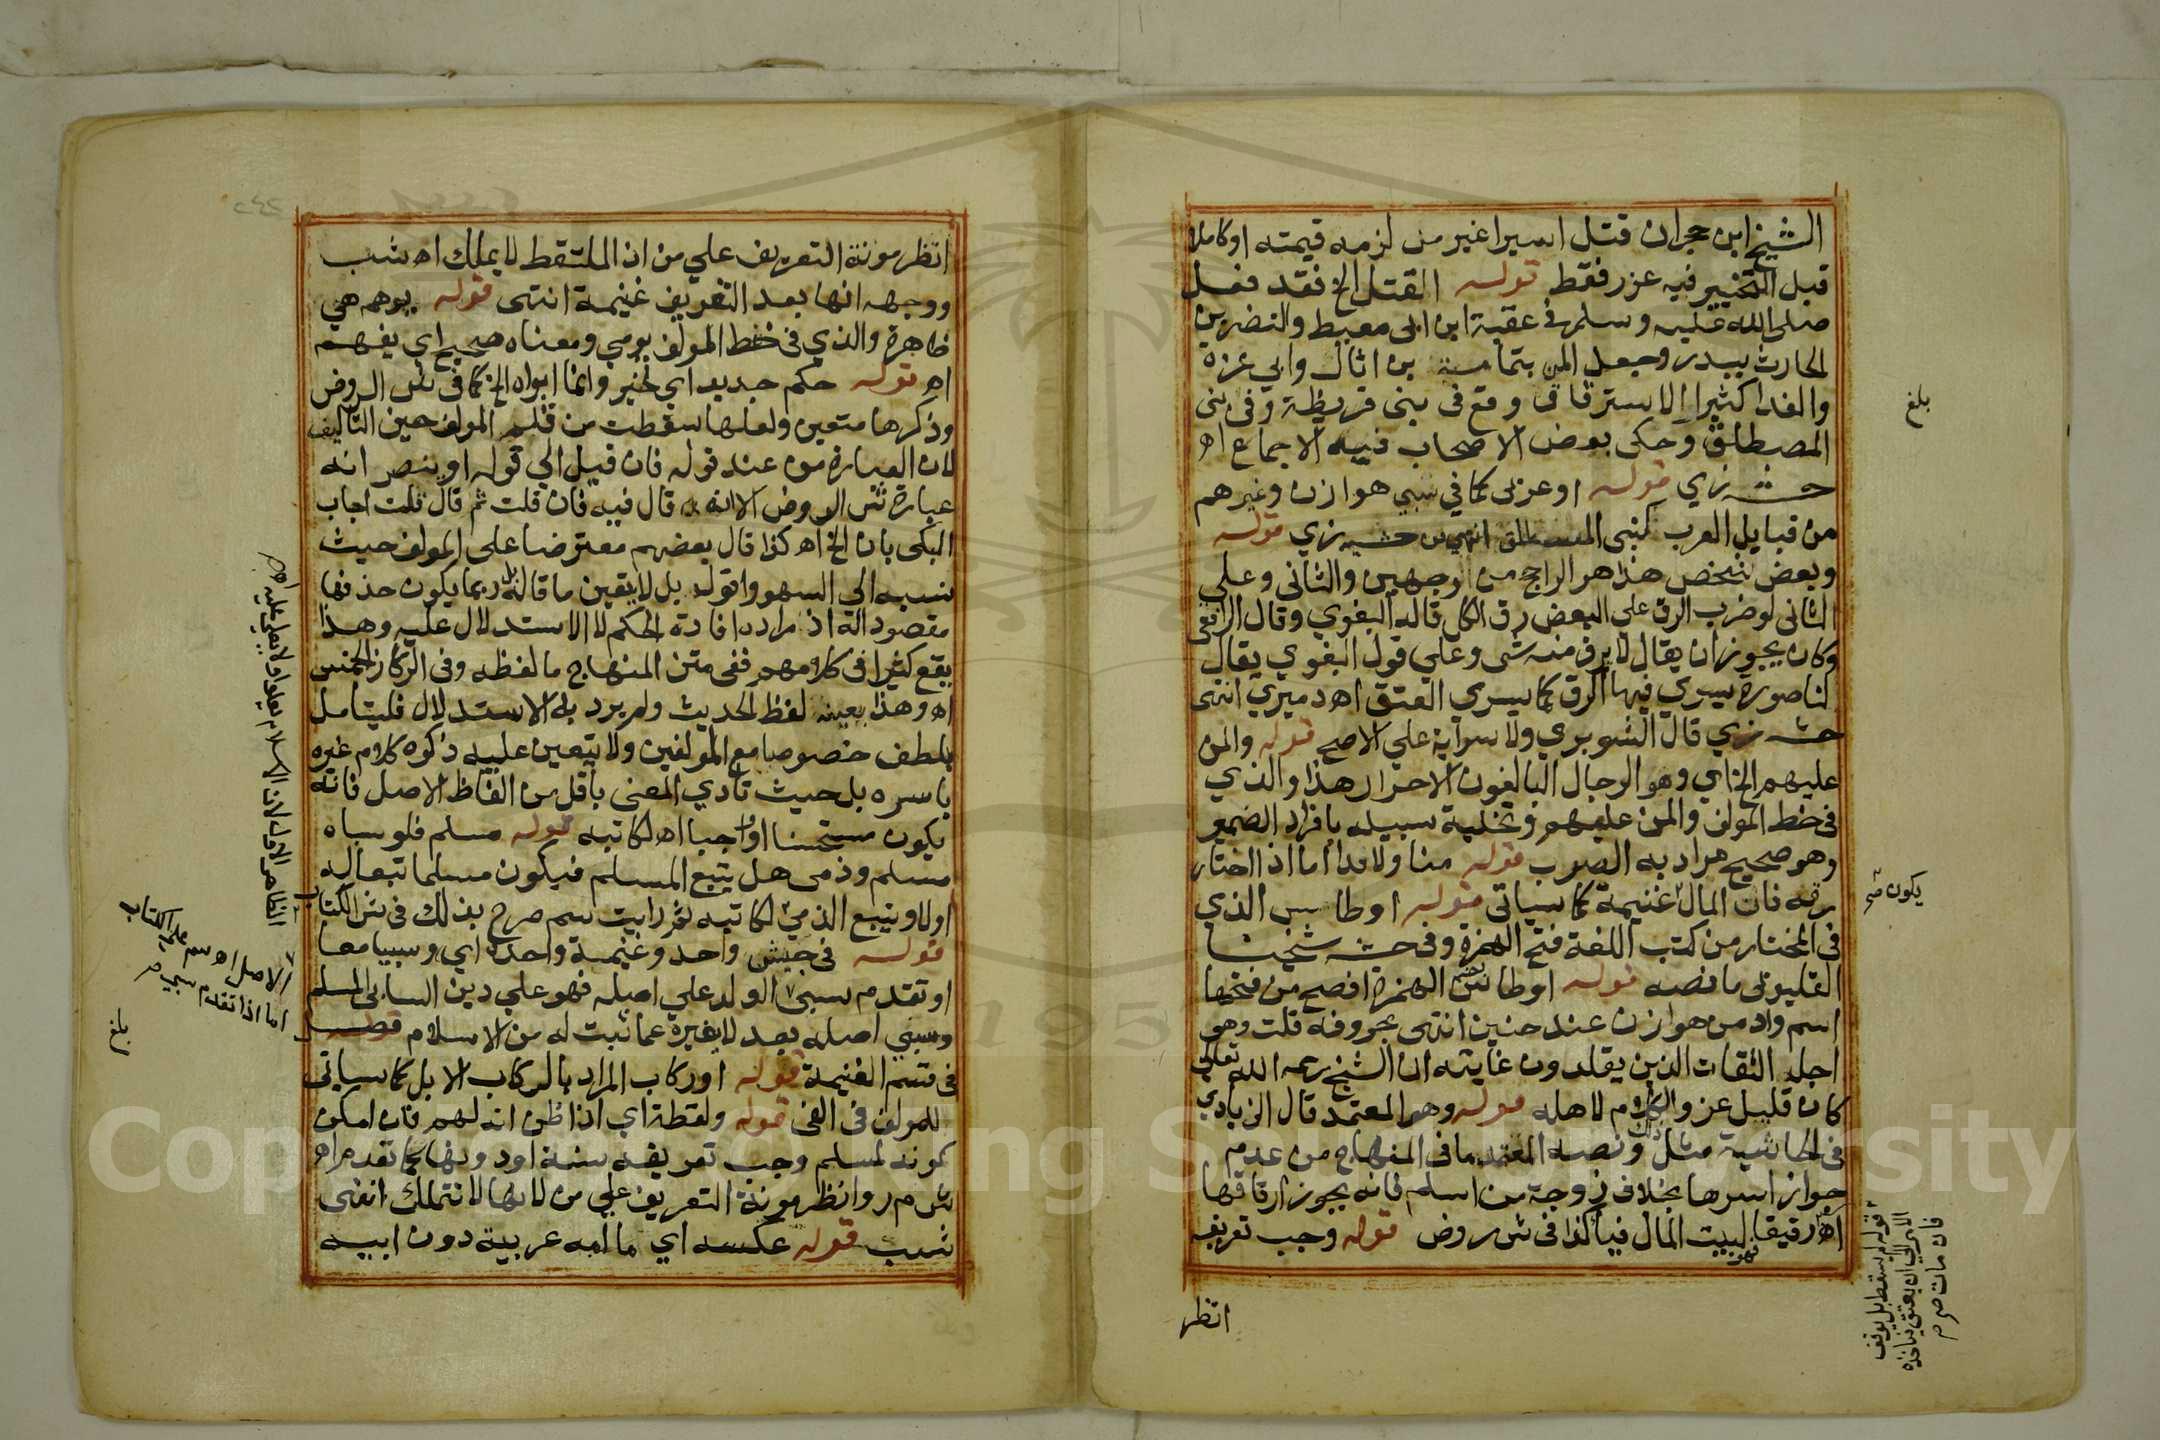 الشيخ ابن حجر ان قتل اسيرا غير من لزمه قيمته او كاملا
قبل التخيير فيه عزر فقط قوله القتل الخ فقد فعل
صلى الله عليه وسلم في عقبة ابن ابي معيط والنضر بن
الحارث ببدر وجعل المن بثمامة بن اثال وابي عزة
والفدا كثيرا الاسترقاق وقع في بني قريظة وفي بني
المصطلق وحكى بعض الاصحاب فيه الاجماع اه
حش زي قوله او عربي كما في سبي هوازن وغيرهم
من قبايل العرب كبني المصطلق انتهى حش زي قوله
وبعض شخص هذا هو الراجح من الوجهين والثاني وعلى
الثاني لو ضرب الرق على البعض رق الكل قاله البغوي وقال الرافعي
وكان يجوز ان يقال لا يرق منه شي وعلي قول البغوي يقال
لنا صورة يسري فيها الرق كما يسري العتق اه دميري انتهى
حش زي قال الشوبري ولا سراية علي الاصح قوله والمن
عليهم الخ اي وهو الرجال البالغون الاحرار هذا والذي
في خط المولف والمن عليهم وتخلية سبيله بافراد الضمير
وهو صحيح مراد به الضرب قوله منا ولا فدا اما اذا اختار
رقه فان المال غنيمة كما سياتي قوله اوطاس الذي
في المختار من كتب اللغة فتح الهمزة وفي حش شيخنا
القليوبي ما نصه قوله اوطاس بضم الهمزة افصح من فتحها
اسم واد من هوازن عند حنين انتهى بحروفه قلت وهو
اجل الثقات الذين يقلدون غايته ان الشيخ رحمه الله تعالى
كان قليل عزو الكلام لاهله قوله وهو المعتمد قال الزيادي
في الحاشية مثل ذلك ونصه المعتمد ما في المنهاج من عدم
جواز اسرها بخلاف زوجة من اسلم فانه يجوز ارقاقها
اه رقيقا فهو لبيت المال فيا كذا في ش روض قوله وجب تعريفه
انظر
بلغ
يكون صح
قوله لم يسقط بل يوقف
فان مات
انظر مونة التعريف علي من اذ الملتقط لا يملك اه شب
ووجهه انها بعد التعريف غنيمة انتهى قوله يوهم هي
ظاهرة والذي في خط المولف يومي ومعناه صحيح اي يفهم
اه قوله حكم جديد اي لخبر وانما ابواه الخ كما في ش الروض
وذكرها متعين ولعلها سقطت من قلم المولف حين التاليف
لان العبارة من عند قوله فان قيل الي قوله او ينصر انه
عبارة ش الروض الا انه قال فيه فان قلت ثم قال قلت اجاب
البكى بان الخ اه كذا قال بعضهم معترضا على المولف حيث
نسبه الي السهو واقول بل لا يتعين ما قاله بل ربما يكون حذفها
مقصودا له اذ مراده افادة الحكم لا الاستدلال عليه وهذا
يقع كثيرا في كلامهم ففي متن المنهاج ما لفظه وفي الركاز الخمس
اه وهذا بعينه لفظ الحديث ولم يرد به الاستدلال فليتامل
بلطف خصوصا مع المولفين ولا يتعين عليه ذكره كلام غيره
باسره بل حيث تادي المعنى باقل من الفاظ الاصل فانه
يكون مستحسنا او واجبا اه لكاتبه قوله مسلم فلو سباه
مسلم وذمي هل يتبع المسلم فيكون مسلما تبعا له
اولا ويتبع الذمي لكاتبه ثم رايت سم صرح بذلك في ش الكتاب
قوله في جيش واحد وغنيمة واحدة اي وسبيا معا
او تقدم سبي الولد علي اصله فهو علي دين السابي المسلم
وسبي اصله بعد لا يغيره عما ثبت له من الاسلام فصل
في قسم الغنيمة قوله او ركاب المراد بالركاب الابل كما سياتي
للمولف في الفي قوله ولقطة اي اذا ظن انه لهم فان امكن
كونه لمسلم وجب تعريفه سنة او دونها كما تقدم اه
ش م ر وانظر مونة التعريف علي من لانها لا تتملك انتهى
شب قوله عكسه اي ما امه عربية دون ابيه
الاصل اه سم علي الكتاب
اما اذا تقدم سبي
بلغ